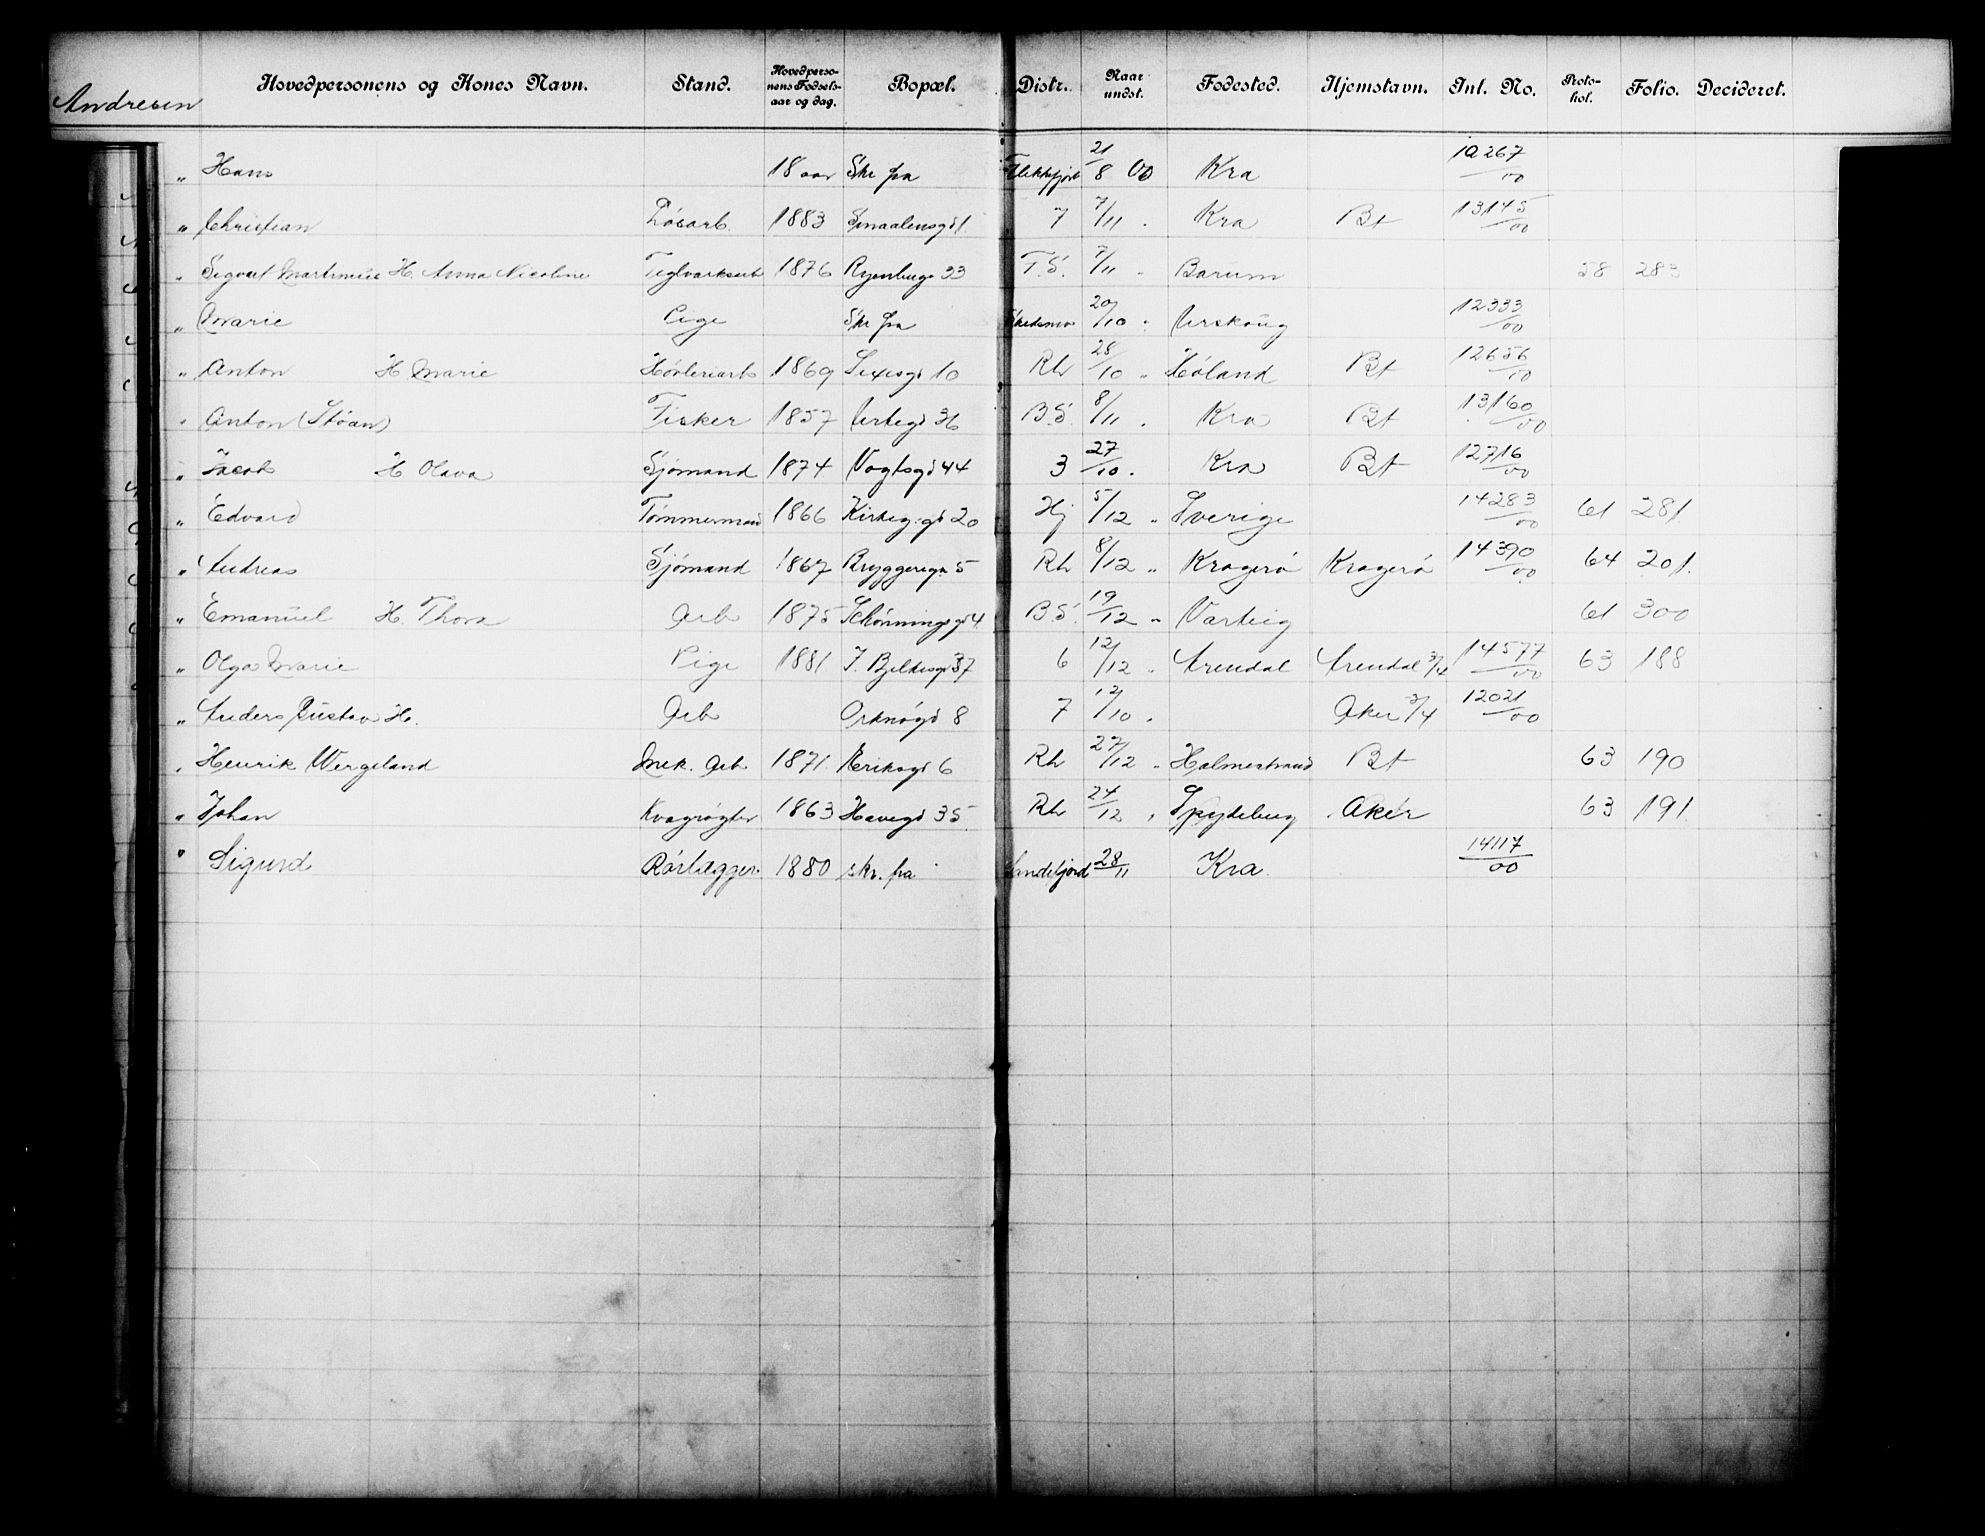 Andresen Hovedpersonens og Kones Navn. Stand. Hovedperso-nens Fødsels-aar og dag. Bopæl. Distr. Naar undst. Fødested. Hjemstavn. Int. No. Proto-kol. Folio. Decideret.
" Hans 18 aar Skr fra Flekkefjord 21/8 00 Kra 10267/00
" Christian Løsarb. 1883 Smaalensgd 1. 7 7/11 " Kra Bt 13145/00
" Sigvart Martinius H. Anna Nicoline Teglværksarb 1876 Ryenbergv 33 T.S. 7/11 " Bærum 58 283
" Marie Pige Skr fra Skedsmo 20/10 " Urskoug 12333/00
" Anton H Marie Høvleriarb 1869 Sexesgd 10 Rh 28/10 " Høland Bt 12656/00
" Anton (Støan) Fisker 1857 Urtegd B.S. 8/11 " Kra Bt 13160/00
" Jacob H Olava Sjømand 1874 Vogtsgd 44 3 27/10 " Kra Bt 12716/00
" Edvard Tømmermand 1866 Kirkeg.gd 20 Hj 5/12 " Sverige 14283/00 61 281
" Andreas Sjømand 1867 Bryggerigd 5 Rh 8/12 " Kragerø Kragerø 14390/00 64 201.
" Emanuel H. Thora Arb 1875 Schønningsgd 4. B.S. 19/12 " Varteig 61 300
" Olga Marie Pige 1881 J. Bjelkesgd 37 6 12/12 " Arendal Arendal 3/4 14577/00 63 188
" Anders Gustav H. Arb Orknøgd 8 7 12/10 " Aker 3/4 12021/00
" Henrik Wergeland Mek. Arb 1871. Eriksgd 6 Rh 27/12 " Holmestrand Bt 63 190
" Johan Kvægrøgter 1863 Havegd 35. Rh 24/12 " Spydeberg Aker 63 191.
" Sigurd Rørlægger 1880 skr. fra Sandefjord 28/11 Kra. 14117/00